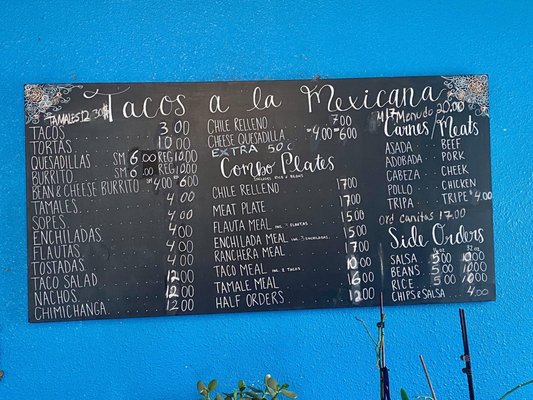 Tacos a la Mexicana
TAMALES 12 30$
TACOS 3 00
TORTAS 10 00
QUESADILLAS SM 6.00 REG 10.00
BURRITO SM 6.00 REG 10.00
BEAN & CHEESE BURRITO 4.00 6.00
TAMALES 4 00
SOPES 4 00
ENCHILADAS 4 00
FLAUTAS 4 00
TOSTADAS 4 00
TACO SALAD 12 00
NACHOS 12 00
CHIMICHANGA 12 00
CHILE RELLENO 7.00
CHEESE QUESADILLA 4.00 6.00
EXTRA 50¢
Combo Plates
INCLUDES RICE & BEANS
CHILE RELLENO 17 00
MEAT PLATE 17 00
FLAUTA MEAL INC. 3 FLAUTAS 15 00
ENCHILADA MEAL INC. 3 ENCHILADAS 15 00
RANCHERA MEAL 17 00
TACO MEAL INC. 2 TACOS 10 00
TAMALE MEAL 16 00
HALF ORDERS 12 00
Menudo 20.00
17
Carnes/Meats
ASADA - BEEF
ADOBADA - PORK
CABEZA - CHEEK
POLLO - CHICKEN
TRIPA - TRIPE $4.00
Ord carnitas 17.00
Side Orders
8 oz 32 oz
SALSA 5 00 10 00
BEANS 5 00 10 00
RICE 5 00 10 00
CHIPS & SALSA 4.00